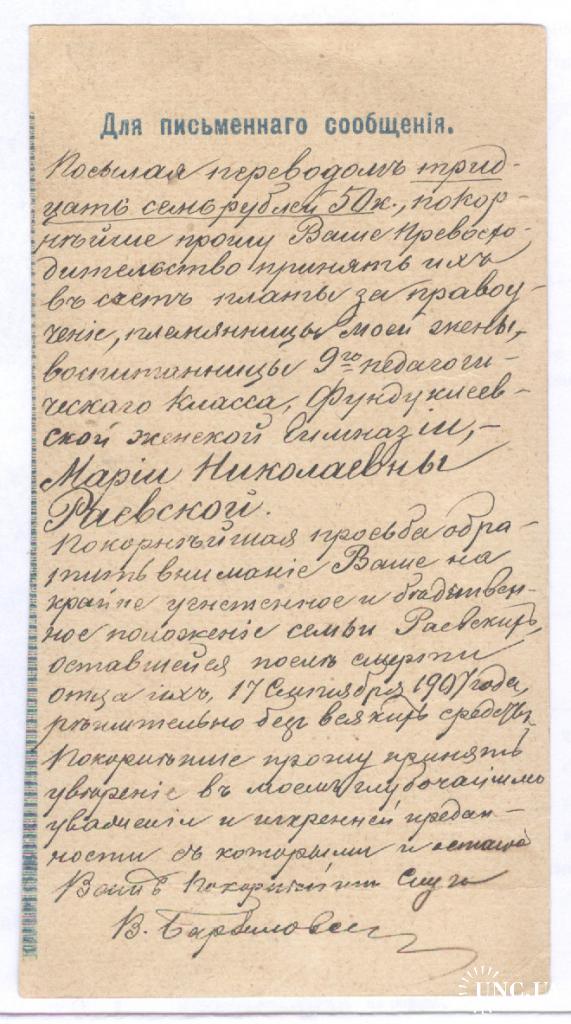 Для письменнаго сообщенія.
Посылая переводомъ трид-
цать семь рублей 50 к., покор-
нѣйше прошу Ваше Превосхо-
дительство принять ихъ
въ счетъ платы за правоу-
ченіе, племянницы моей жены,
воспитанницы 9го педагоги-
ческаго класса, Фундуклеев-
ской женской Гимназіи, –
Маріи Николаевны
Раевской.
Покорнѣйшая просьба обра-
тить вниманіе Ваше на
крайне угнетенное и бѣдствен-
ное положеніе семьи Раевскихъ,
оставшейся послѣ смерти
отца ихъ, 17 Сентября 1907 года,
рѣшительно безъ всякихъ средствъ.
Покорнѣйше прошу принять
увѣреніе въ моемъ глубочайшемъ
уваженіи и искренней предан-
ности съ которыми и остаюсь
Вашъ Покорнѣйшій Слуга
В.
UNC.U